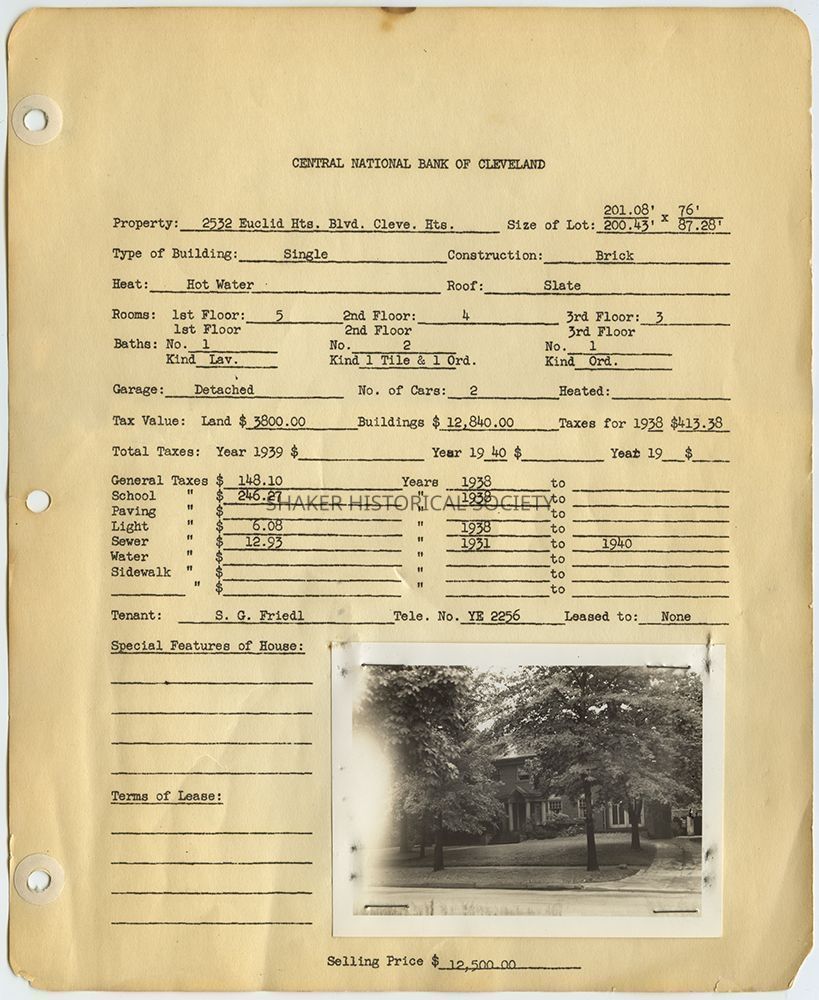 CENTRAL NATIONAL BANK OF CLEVELAND
201.08' x 76'
Property: 2532 Euclid Hts. Blvd. Cleve. Hts. Size of Lot: 200.43' 87.28'
Type of Building: Single Construction: Brick
Heat: Hot Water Roof: Slate
Rooms: 1st Floor: 5 2nd Floor: 4 3rd Floor: 3
1st Floor 2nd Floor 3rd Floor
Baths: No. 1 No. 2 No. 1
Kind Lav. Kind 1 Tile & 1 Ord. Kind Ord.
Garage: Detached No. of Cars: 2 Heated:
Tax Value: Land $ 3800.00 Buildings $ 12,840.00 Taxes for 1938 $413.38
Total Taxes: Year 1939 $ Year 19 40 $ Year 19 $
General Taxes $ 148.10 Years 1938 to
School " $ 246.27 " 1938 to
SHAKER HISTORICAL SOCIETY
Paving " $ " to
Light " $ 6.08 " 1938 to
Sewer " $ 12.93 " 1931 to 1940
Water " $ " to
Sidewalk " $ " to
" $ " to
Tenant: S. G. Friedl Tele. No. YE 2256 Leased to: None
Special Features of House:
Terms of Lease:
Selling Price $ 12,500.00